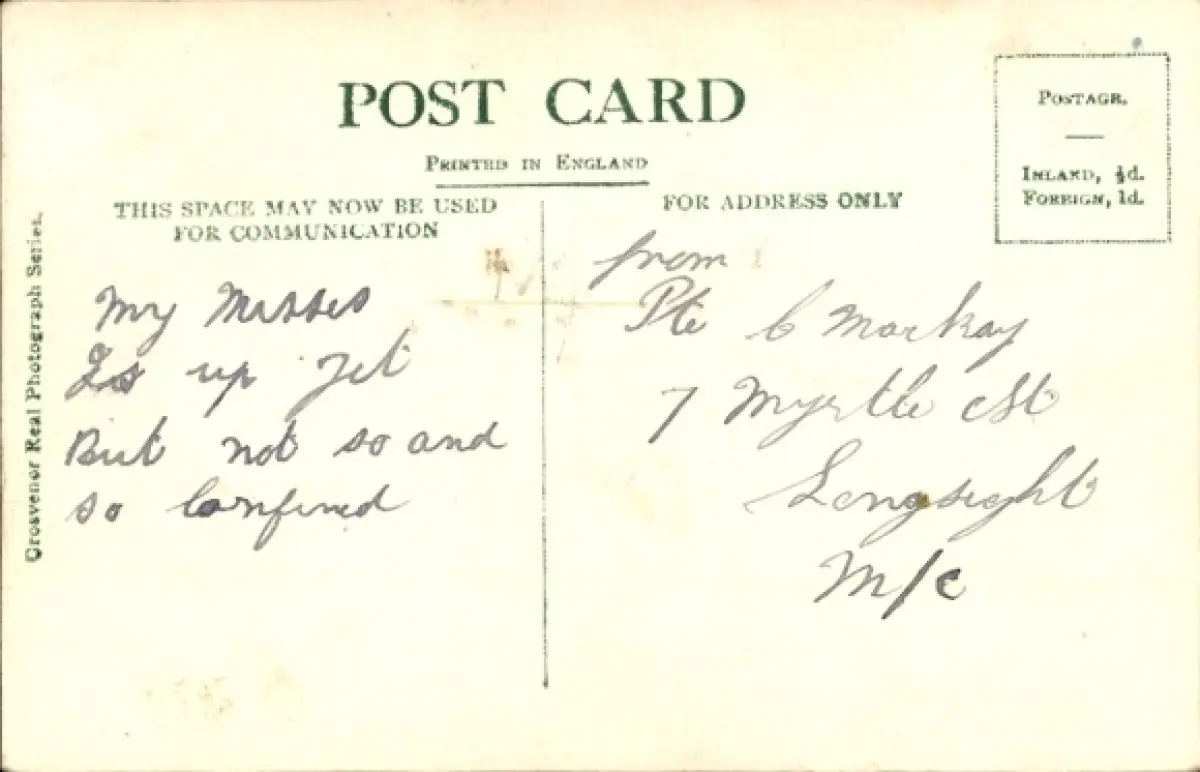 POST CARD
PRINTED IN ENGLAND
POSTAGE.
INLAND, ½d.
FOREIGN, 1d.
THIS SPACE MAY NOW BE USED
FOR COMMUNICATION
FOR ADDRESS ONLY
Grosvenor Real Photograph Series.
My Misses
Is up Yet
But not so and
so Confined
from
Pte C Mackay
7 Myrtle St
Longsight
M/c